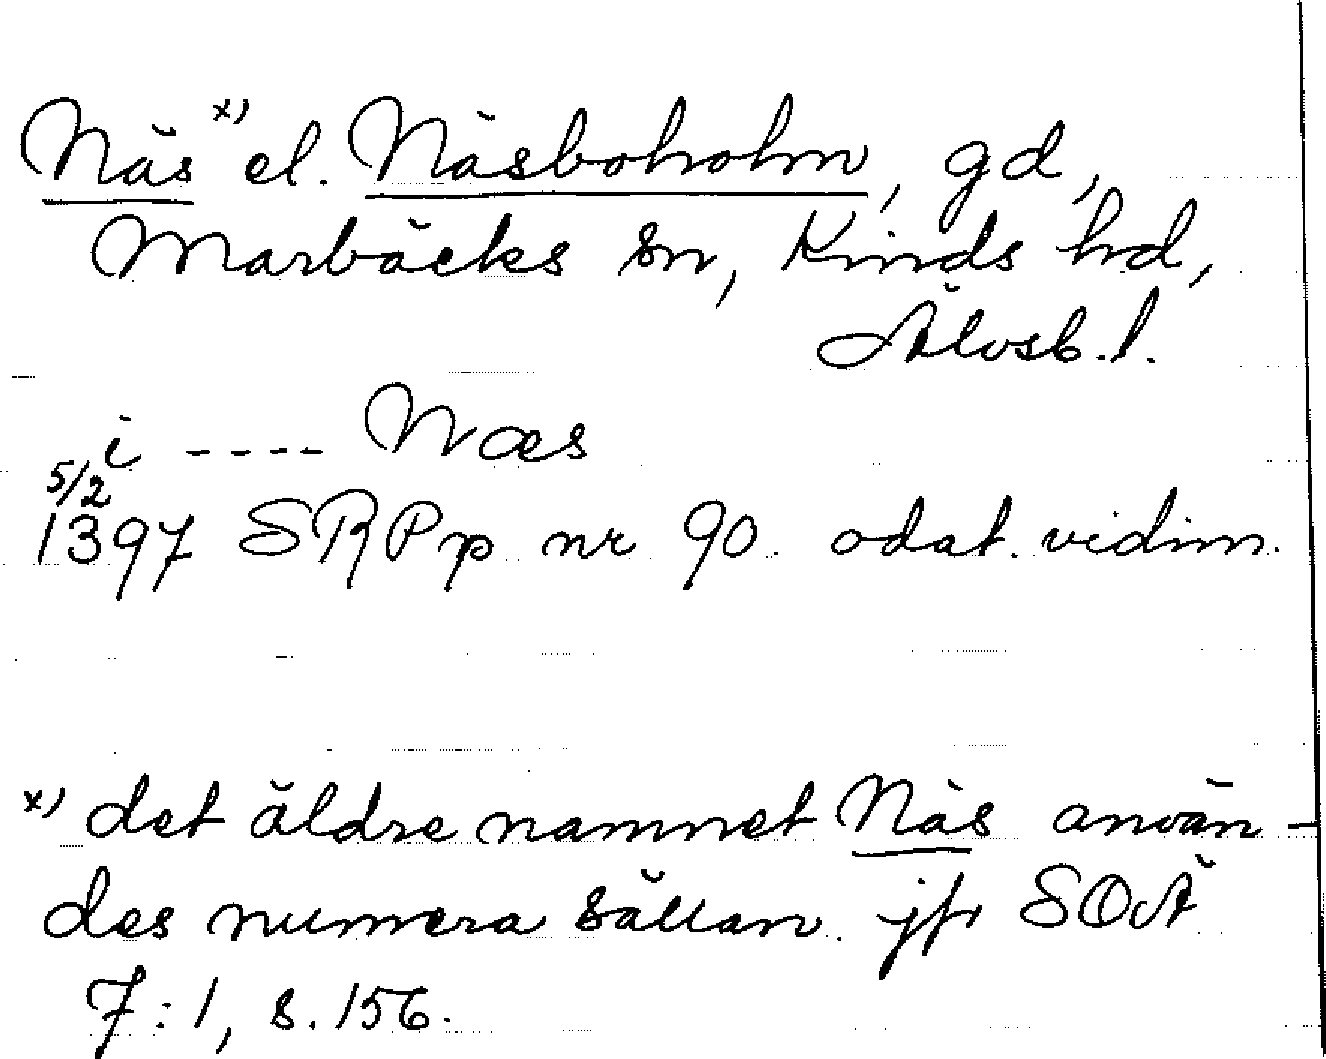 Näs x) el. Näsboholm, gd,
Marbäcks sn, Kinds hd,
Älvsb. l.
i ---- Næs
5/2
1397 SRPp nr 90 odat. vidim.
x) det äldre namnet Näs använ-
des numera sällan. jfr SOÄ
7:1, s. 156.